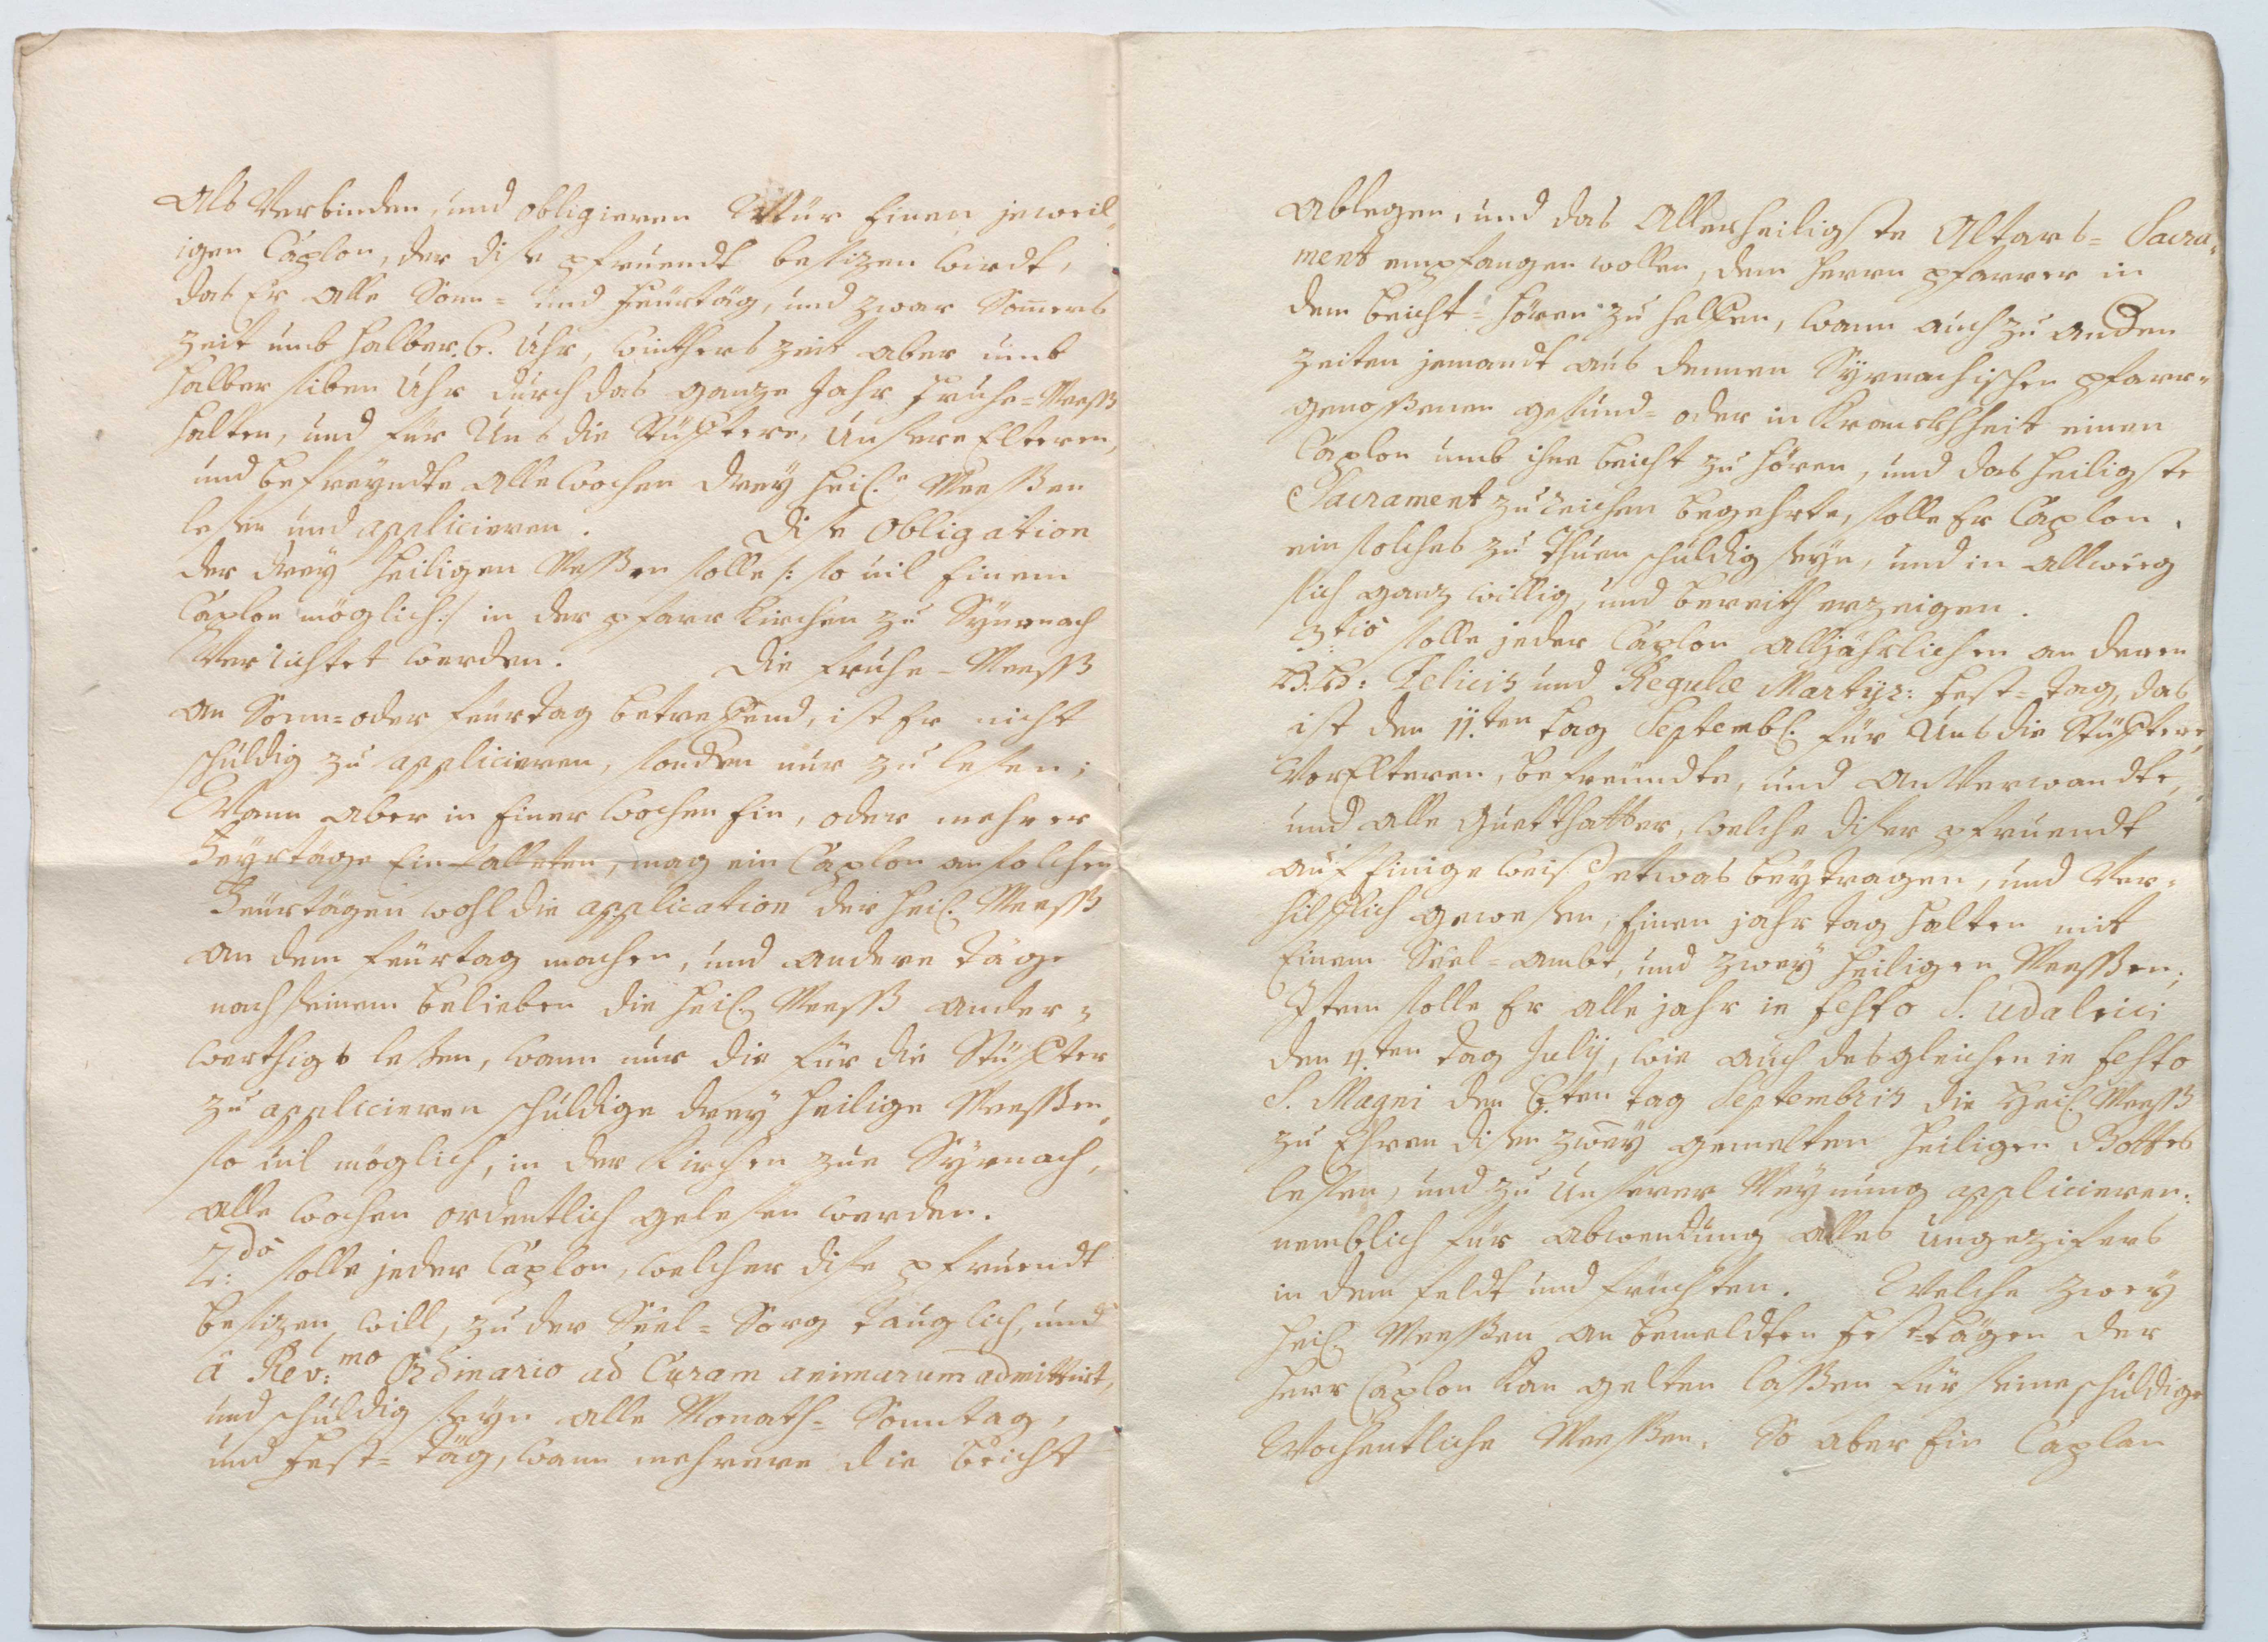 Als Verbinden, und obligieren Wür Einen jeweil¬
igen Caplon, der dise pfruendt besizen wirdt,
das Er alle Sonn= und Feürtäg, und zwar Somers
Zeit umb halber .6. Uhr, winthers zeit aber umb
halber siben Uhr durch das ganze Jahr Fruhe=Meeß
halten, und für Uns die Stüfftere, Unsere Elteren,
und befreyndte alle wochen drey heil.e Meeßen
lesen und applicieren. Dise Obligation
der drey heiligen Meßen solle /: so uil Einem
Caplon möglich :/ in der pfarr Kirchen zu Syrnach
Verichtet werden. Die fruhe=Meeß
an Sonn= oder feürtag betreffend, ist Er nicht
schuldig zu applicieren, sonden nur zu lesen;
Wann aber in Einer wochen Ein, oder mehrer
Feyrtäge Einfalleten, mag ein Caplon an solchen
Feürtägen wohl die application der heil. Meeß
an dem feürtag machen, und andere täge
nach seinem belieben die heil. Meeß ander=
werthigs lesen, wann nur die für die Stüffter
zu applicieren schuldige drey heilige Meeßen,
so uil möglich, in der Kirchen zue Syrnach,
alle wochen ordentlich gelesen werden.
2:dò solle jeder Caplon, welcher dise pfruendt
besizen will, zu der Seel=Sorg tauglich, und
à Rev:mo Ordinario ad Curam animarum admittirt,
und schuldig seyn alle Monath=Sonntag,
und fest=täg, wann mehrere die beicht
ablegen, und das Allerheiligste Altars=Sacra¬
ment empfangen wollen, dem herrn pfarrer in
dem beicht=hören zu helffen, wann auch zu anden
zeiten jemandt aus dennen Syrnachischen pfarr=
genoßenen gesund= oder in Kranckhheit einen
Caplon umb ihne beicht zu hören, und das heiligste
Sacrament zu reichen begehrte, solle Er Caplon,
ein solches zu thuen schuldig seyn, und in allweeg
sich ganz willig, und bereith erzeigen.
3:tiò solle jeder Caplon alljährlichen an deren
SS: Felicis und Regulæ Martyr: fest=tag, das
ist den 11.ten tag Septemb. für Uns die Stüfftere,
VorElteren, befreundte, und anVerwandte,
und alle Guetthätter, welche diser pfruendt
auf Einige weis etwas beytragen, und Ver=
hilfflich gewesen, Einen jahr tag halten mit
Einem Seel=ambt, und zwey heiligen Meeßen;
Item solle Er alle jahr in festo S. Udalrici
den 4.ten tag Julij, wie auch desgleichen in festo
S. Magni den 6.ten tag Septembris die heil. Meeß
zu Ehren disen zwey gemelten heiligen Gottes
lesen, und zu Unserer Meynung applicieren:
nemblich für abwendung alles ungezifers
in dem feldt und früchten. Welche zwey
heil. Meeßen an bemeldten fest=tägen der
herr Caplon kan gelten laßen für seine schuldige
Wochentliche Meeßen. So aber Ein Caplan